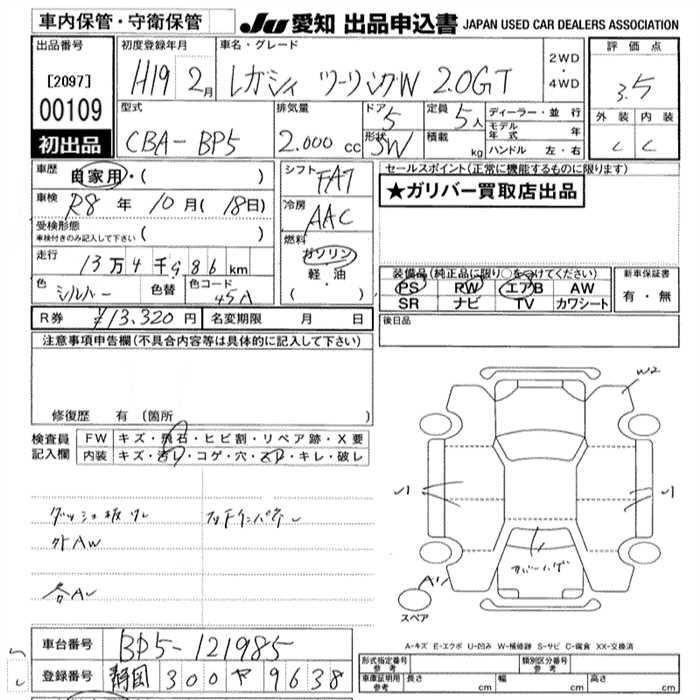 車内保管・守衛保管
JU 愛知 出品申込書 JAPAN USED CAR DEALERS ASSOCIATION
出品番号
[2097]
00109
初出品
初度登録年月
H19 2月
車名・グレード
レガシィ ツーリングW 2.0GT
2WD
・
4WD
評価点
3.5
外装 内装
C C
型式
CBA-BP5
排気量
2.000 cc
ドア
5
形状
SW
定員
5人
積載
kg
ディーラー・並行
モデル年式 年
ハンドル 左・右
車歴
自家用・( )
車検
R8 年 10月( 18日)
受検形態
車検付きのみ記入して下さい ( )
走行
13万4千986km
色
シルバー
色替
色コード
45A
シフト
FAT
冷房
AAC
燃料
ガソリン
軽・油
( ・ )
セールスポイント(正常に機能するものに限ります)
★ガリバー買取店出品
装備品(純正品に限り○をつけてください)
PS RW エアB AW
SR ナビ TV カワシート
新車保証書
有・無
R券 ¥13,320円 名変期限 月 日
後日品
注意事項申告欄(不具合内容等は具体的に記入して下さい)
修復歴 有 (箇所 )
検査員
記入欄
FW キズ・飛石・ヒビ割・リペア跡・X要
内装 キズ・汚レ・コゲ・穴・スレ・キレ・破レ
外AW
各Aレ
W2
A1
スペア
A-キズ E-エクボ U-凹み W-補修跡 S-サビ C-腐食 XX-交換済
車台番号 BP5-121985
登録番号 静岡 300 ヤ 9638
形式指定番号
参考
類別区分番号
参考
車庫証明用
参考
長さ cm 幅 cm 高さ cm